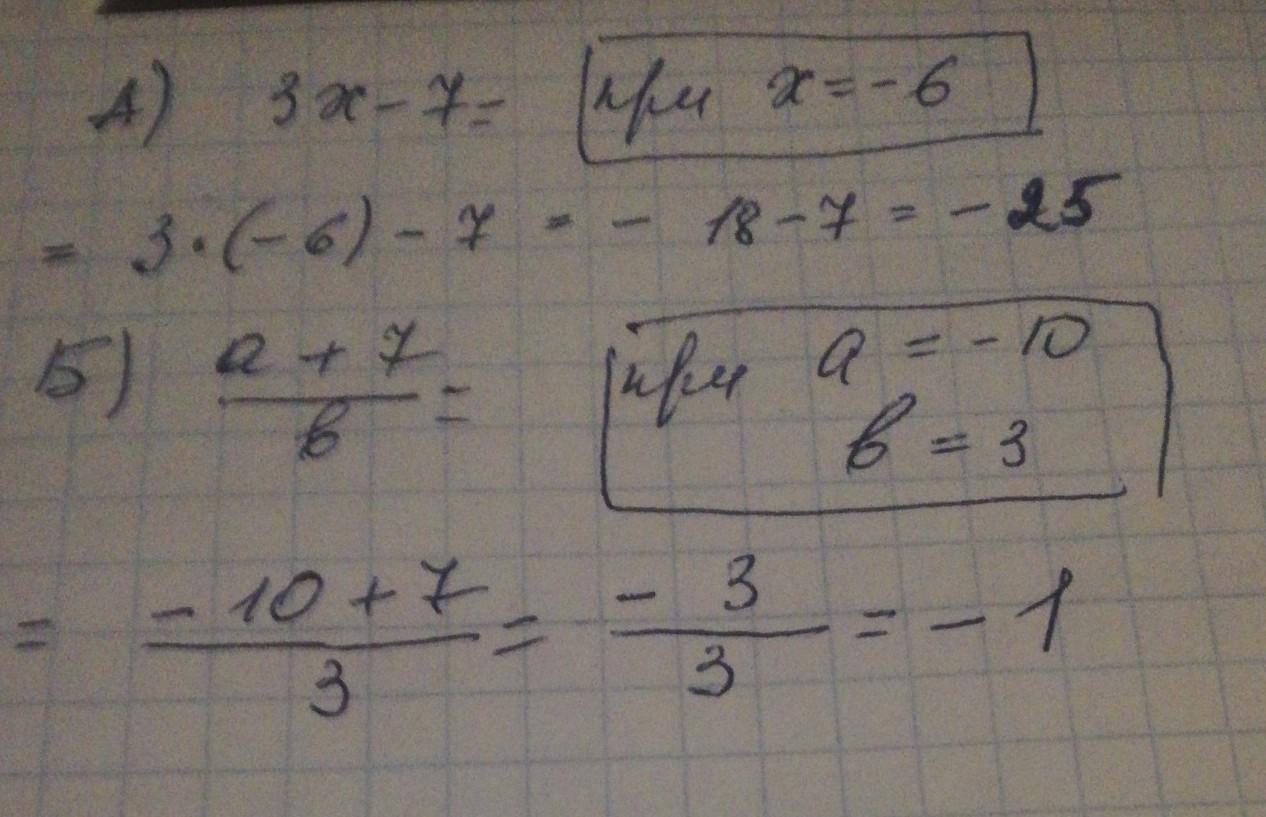 А) 3x - 7 = при x = -6
= 3 · (-6) - 7 = - 18 - 7 = - 25
Б) \frac{a + 7}{b} = при a = - 10
b = 3
= \frac{- 10 + 7}{3} = \frac{- 3}{3} = - 1